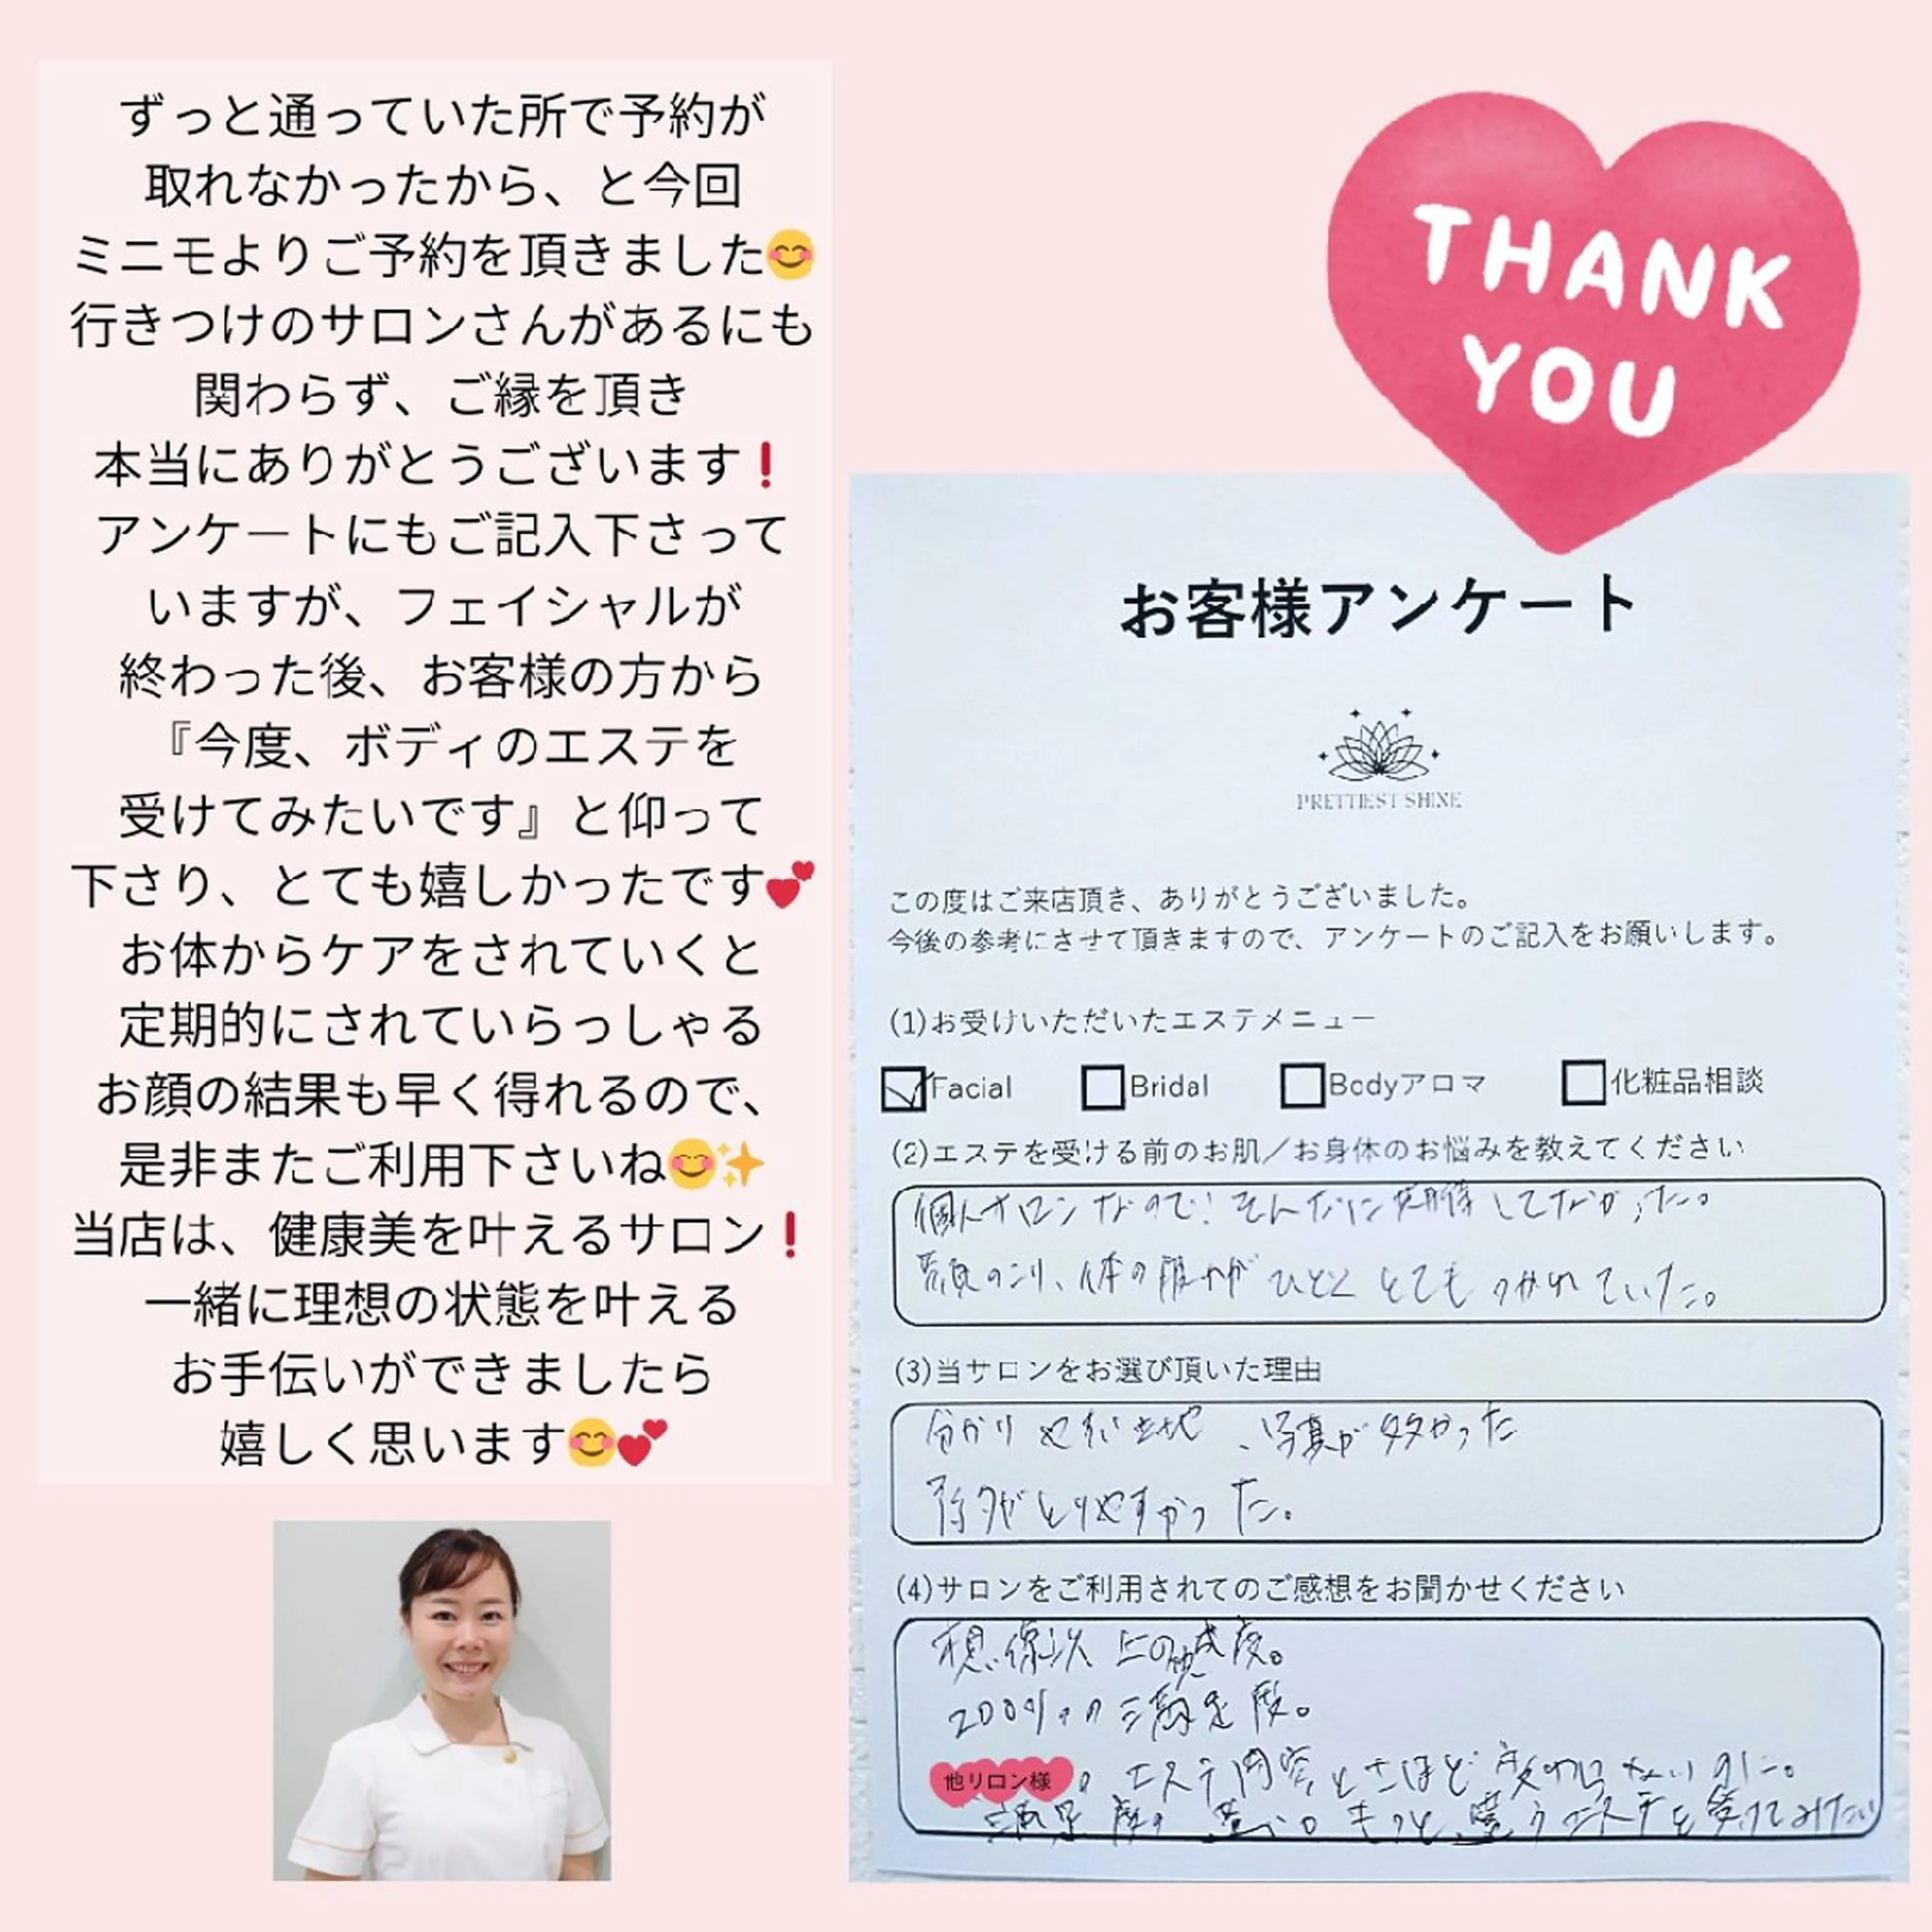 ずっと通っていた所で予約が
取れなかったから、と今回
ミニモよりご予約を頂きました😊
行きつけのサロンさんがあるにも
関わらず、ご縁を頂き
本当にありがとうございます❗
アンケートにもご記入下さって
いますが、フェイシャルが
終わった後、お客様の方から
『今度、ボディのエステを
受けてみたいです』と仰って
下さり、とても嬉しかったです💕
お体からケアをされていくと
定期的にされていらっしゃる
お顔の結果も早く得れるので、
是非またご利用下さいね😊✨
当店は、健康美を叶えるサロン❗
一緒に理想の状態を叶える
お手伝いができましたら
嬉しく思います😊💕
THANK
YOU
お客様アンケート
PRETTIEST SHINE
この度はご来店頂き、ありがとうございました。
今後の参考にさせて頂きますので、アンケートのご記入をお願いします。
(1)お受けいただいたエステメニュー
Facial Bridal Bodyアロマ 化粧品相談
(2)エステを受ける前のお肌／お身体のお悩みを教えてください
個人サロンなので！そんなに期待してなかった。
顔のこり、体の疲れがひどくとてもつかれていた。
(3)当サロンをお選び頂いた理由
分かりやすい立地、写真が多かった
予約がとりやすかった。
(4)サロンをご利用されてのご感想をお聞かせください
想像以上の満足度。
200%の満足度。
他サロン様の エステ内容とさほど変わらないのに。
満足度の違い。きっと違うエステも受けてみたい